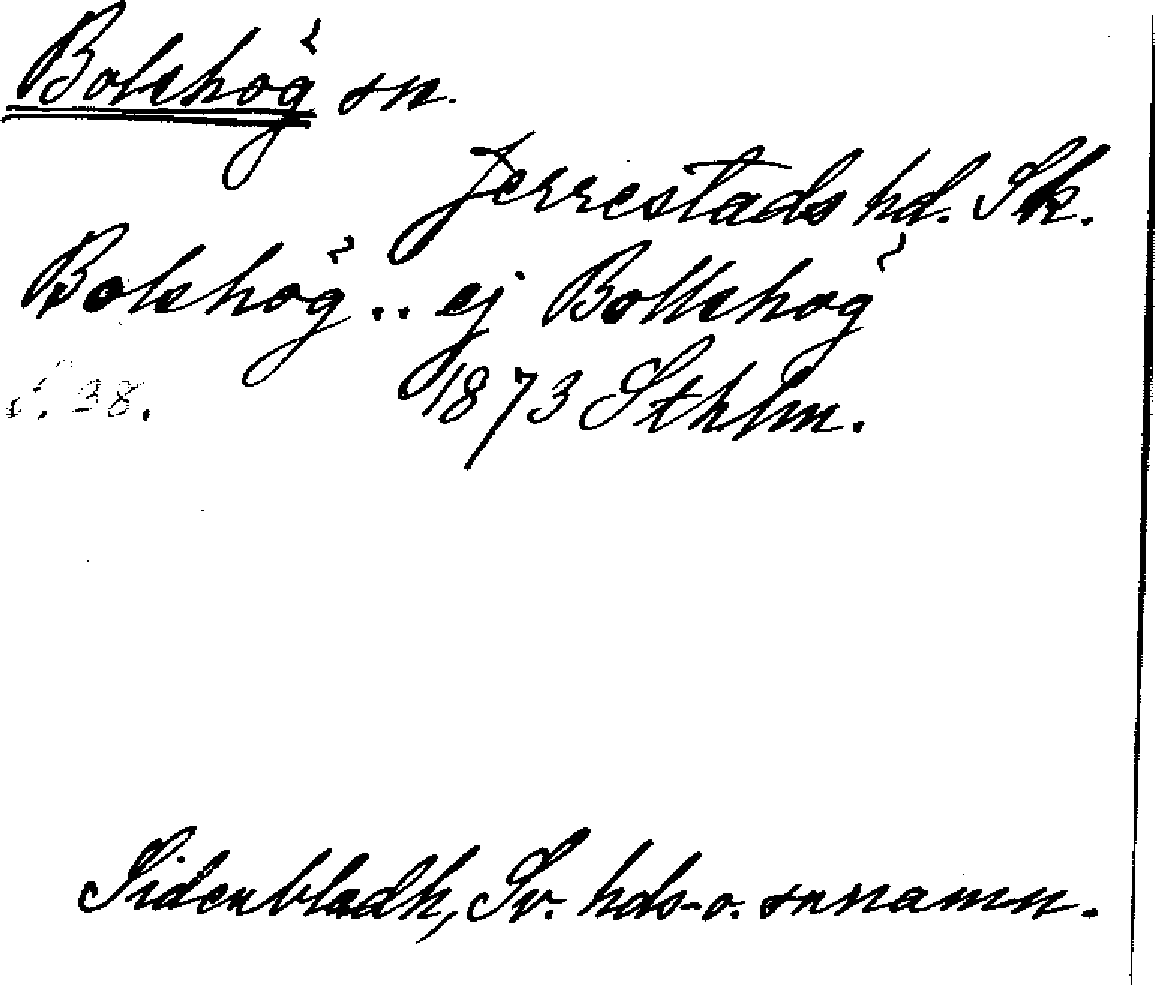 Bolshög sn.
Jerrestads hd. Sk.
Bolshög .. ej Bollshög
s. 38. 1873 Sthlm.
Sidenbladh, Sv. hds- o. snnamn.